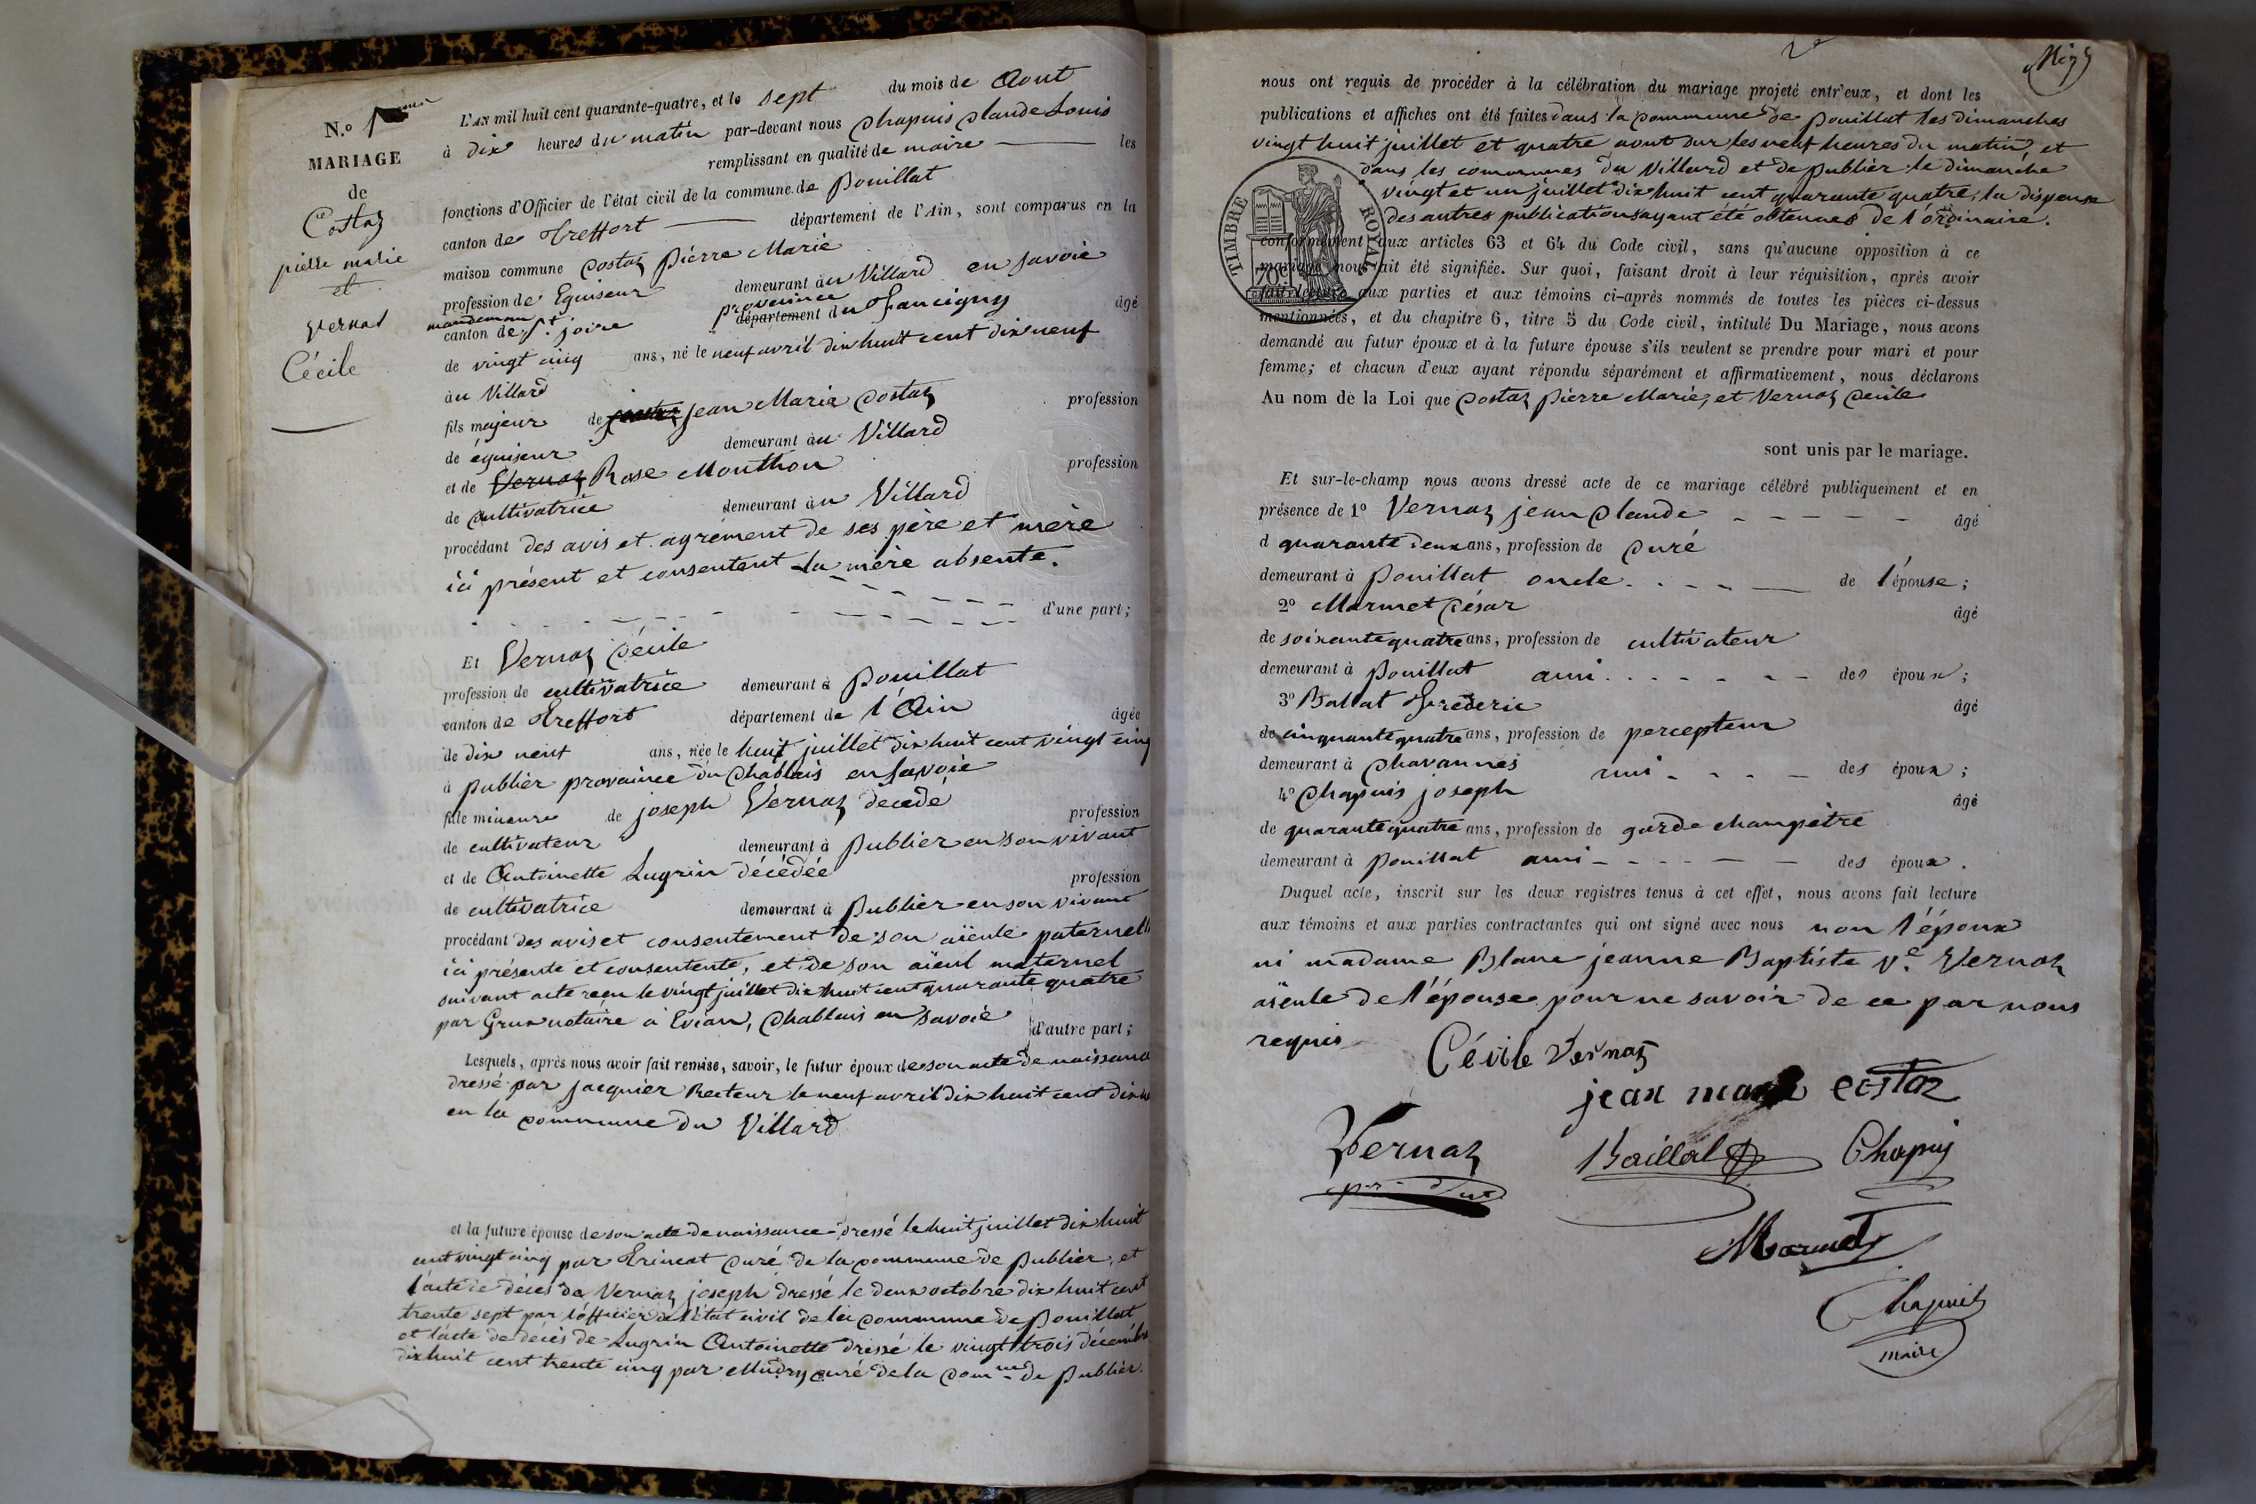 N.o 1
MARIAGE
de
Costaz
pierre marie
et
Vernaz
Cécile
L'AN mil huit cent quarante-quatre, et le sept du mois de Aout
à dix heures du matin par-devant nous Chapuis Claude Louis
remplissant en qualité de maire les
fonctions d'Officier de l'état civil de la commune de Pouillat
canton de Treffort département de l'Ain, sont comparus en la
maison commune Costaz Pierre Marie
profession de Eguiseur demeurant àu Villard en savoie
mandement provaince
canton de St. joire département du faucigny âgé
de vingt cinq ans, né le neuf avril dix huit cent dix neuf
àu Villard
fils majeur de jean Marie Costaz profession
de éguiseur demeurant àu Villard
et de Vernaz Rose Monthon profession
de cultivatrice demeurant àu Villard
procédant des avis et agrement de ses père et mère
ici présent et consentent la mère absente.
d'une part;
Et Vernaz Cécile
profession de cultivatrice demeurant à Pouillat
canton de Treffort département de l'Ain âgée
de dix neuf ans, née le huit juillet dix huit cent vingt cinq
à publier provaince du Chablais en Savoie
fille mineure de joseph Vernaz décedé profession
de cultivateur demeurant à Publier en son vivant
et de Antoinette Lugrin décédée profession
de cultivatrice demeurant à Publier en son vivant
procédant des avis et consentement de son aïeule paternelle
ici présente et consentente, et de son aïeul maternel
suivant acte recu le vingt juillet dix huit cent quarante quatre
par Grux notaire a Evian, Chablais en Savoie d'autre part;
Lesquels, après nous avoir fait remise, savoir, le futur époux de son acte de naissance
dressé par jacquier Recteur le neuf avril dix huit cent dix
en la commune du Villard
et la future épouse de son acte de naissance dressé le huit juillet dix huit
cent vingt cinq par Trincat Curé de la commune de Publier, et
l'acte de décés de Vernaz joseph dressé le deux octobre dix huit cent
trente sept par l'officier de l'état civil de la commune de Pouillat
et l'acte de décés de Lugrin Antoinette dressé le vingt trois décembre
dix huit cent trente cinq par Mudry curé de la Comne de Publier.
2e
nous ont requis de procéder à la célébration du mariage projeté entr'eux, et dont les
publications et affiches ont été faites dans la commune de Pouillat les dimanches
vingt huit juillet et quatre aout sur les neuf heures du matin et
dans les communes du Villard et de Publier le dimanche
vingt et un juillet dix huit cent quarante quatre; la dispense
des autres publications ayant été obtenues de l'ordinaire.
TIMBRE ROYAL
70c
conformément aux articles 63 et 64 du Code civil, sans qu'aucune opposition à ce
mariage nous ait été signifiée. Sur quoi, faisant droit à leur réquisition, après avoir
fait lecture aux parties et aux témoins ci-après nommés de toutes les pièces ci-dessus
mentionnées, et du chapitre 6, titre 5 du Code civil, intitulé Du Mariage, nous avons
demandé au futur époux et à la future épouse s'ils veulent se prendre pour mari et pour
femme; et chacun d'eux ayant répondu séparément et affirmativement, nous déclarons
Au nom de la Loi que Costaz Pierre Marie, et Vernaz Cécile
sont unis par le mariage.
Et sur-le-champ nous avons dressé acte de ce mariage célébré publiquement et en
présence de 1o Vernaz jean Claude âgé
d quarante deux ans, profession de Curé
demeurant à Pouillat oncle de l'épouse;
2o Marmet César âgé
de soixante quatre ans, profession de cultivateur
demeurant à Pouillat ami des époux;
3o Ballat Frederic âgé
de cinquante quatre ans, profession de percepteur
demeurant à Chavannes ami des époux;
4o Chapuis joseph âgé
de quarante quatre ans, profession de garde champêtre
demeurant à Pouillat ami des époux.
Duquel acte, inscrit sur les deux registres tenus à cet effet, nous avons fait lecture
aux témoins et aux parties contractantes qui ont signé avec nous non l'époux
ni madame Blanc jeanne Baptiste Ve. Vernaz
aïeule de l'épouse pour ne savoir de ce par nous
requis
Cécile Vernaz
jean marie costaz
Vernaz Baillat Chapuis
Marmet
Chapuis
maire